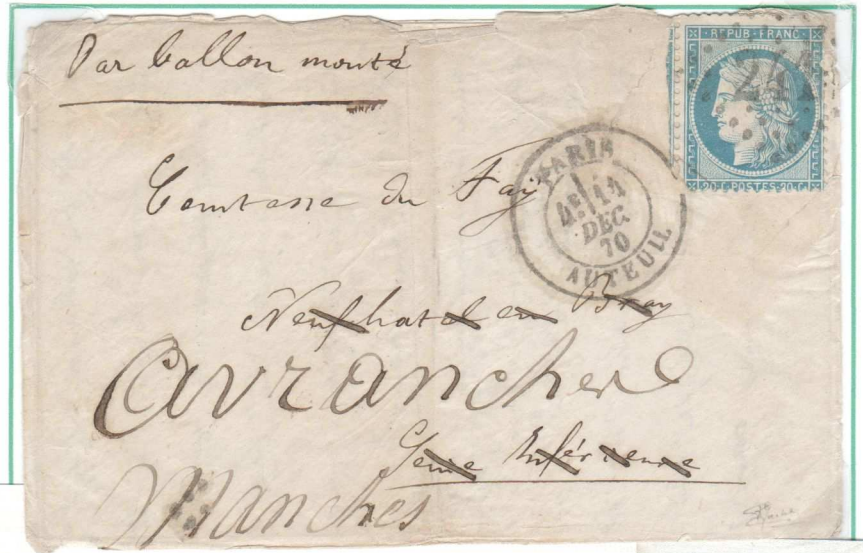 Par ballon monté
REPUB·FRANC·
20·C·POSTES·20·C·
PARIS
4E/14
DEC.
70
AUTEUIL
Comtesse du Fay
Neufchatel en Bray
Avranches
Seine Inférieure
Manches